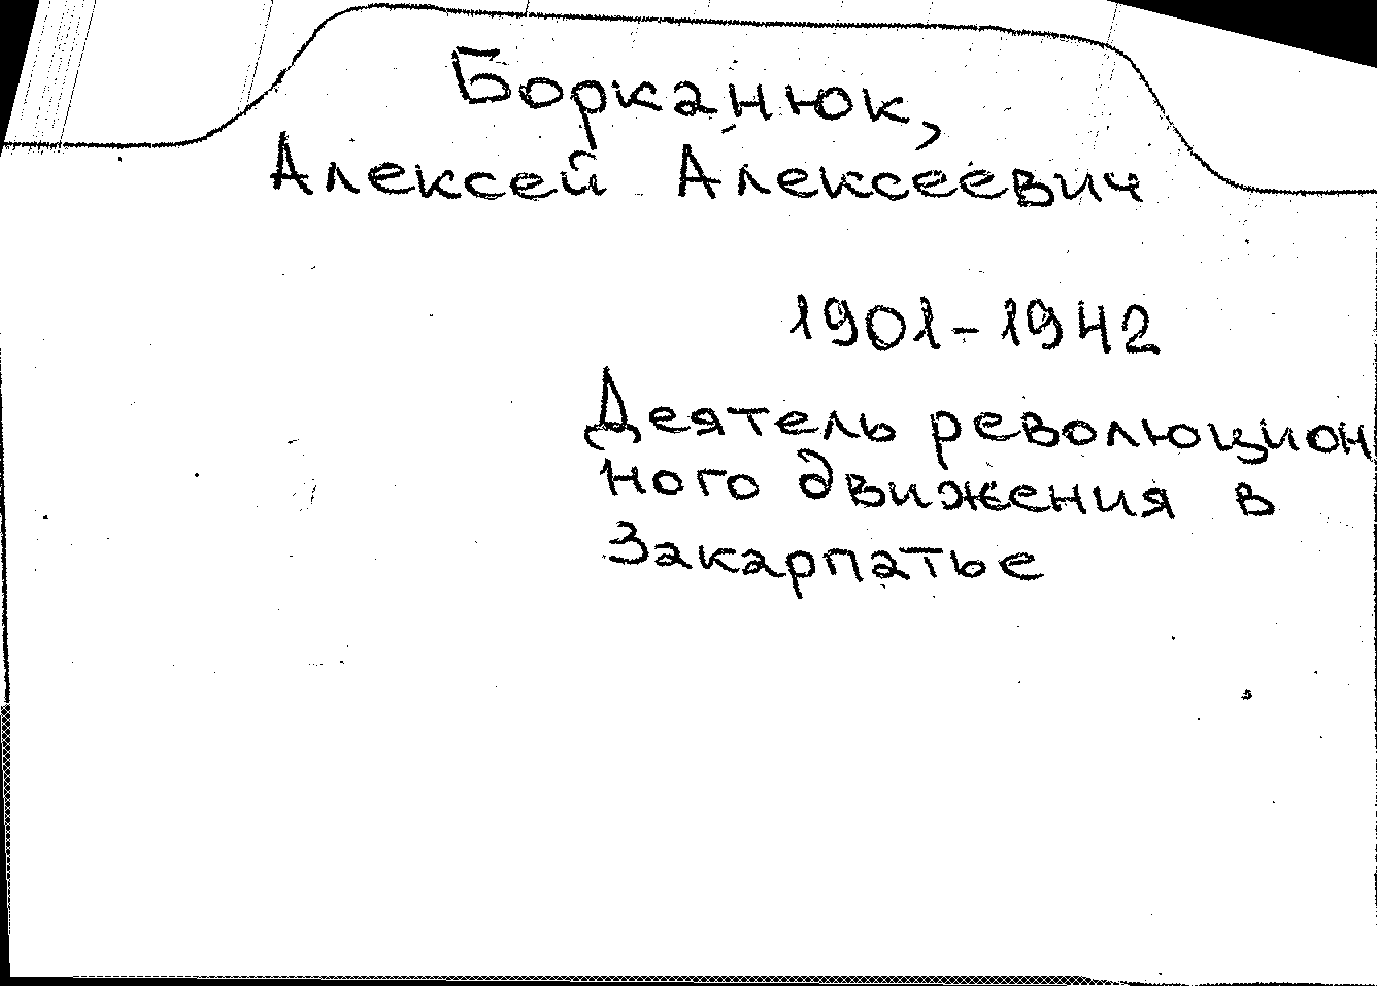 Борканюк,
Алексей Алексеевич
1901-1942
Деятель революцион
ного движения в
Закарпатье